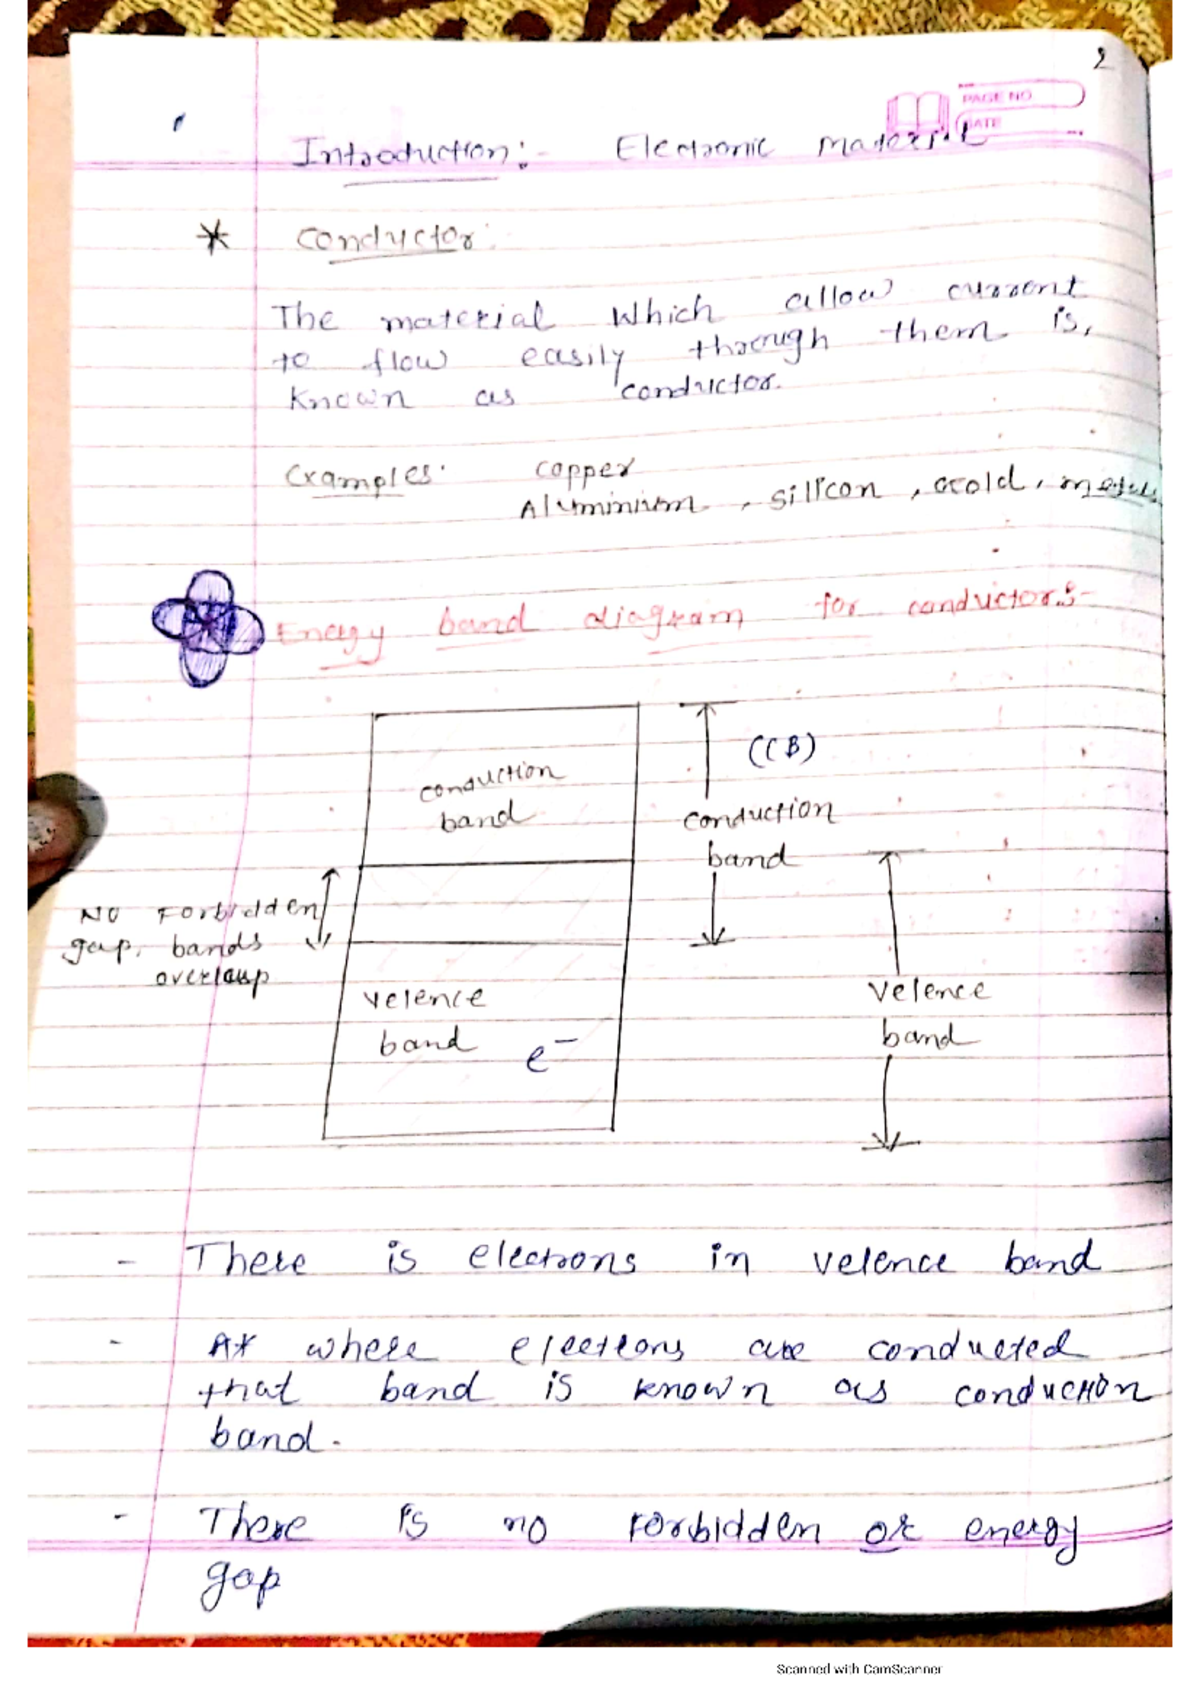 2
PAGE NO
DATE
Introduction:- Electronic Material
* Conductor:
The material Which allow current
to flow easily through them is,
known as conductor.
Examples: copper
Aluminium, silicon, Gold,
Energy band diagram for conductors:-
(CB)
conduction
band
conduction
band
NO Forbidden
gap, bands
overlap
velence
band e-
velence
band
- There is electrons in velence band
- At where electrons are conducted
that band is known as conduction
band.
- There is no Forbidden or energy
gap
Scanned with CamScanner